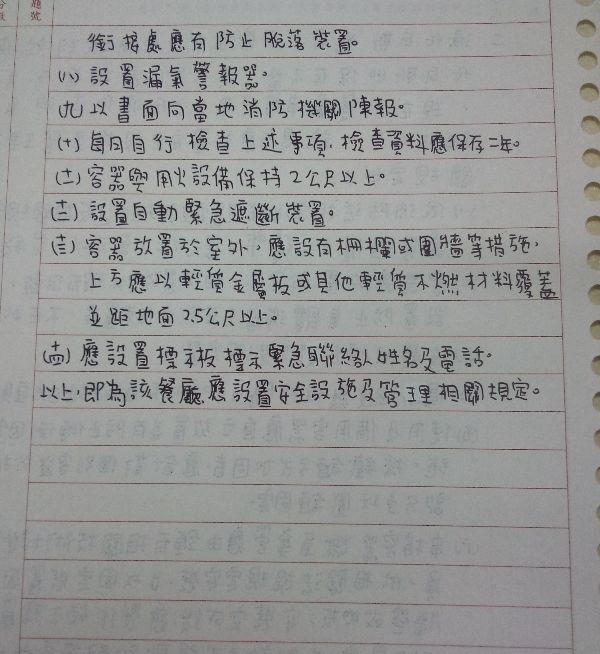 題號
銜接處應有防止脫落裝置。
(八) 設置漏氣警報器。
(九) 以書面向當地消防機關陳報。
(十) 每月自行檢查上述事項,檢查資料應保存二年。
(十一) 容器與用火設備保持2公尺以上。
(十二) 設置自動緊急遮斷裝置。
(十三) 容器放置於室外,應設有柵欄或圍牆等措施,
上方應以輕質金屬板或其他輕質不燃材料覆蓋
並距地面2.5公尺以上。
(十四) 應設置標示板標示緊急聯絡人姓名及電話。
以上,即為該餐廳應設置安全設施及管理相關規定。